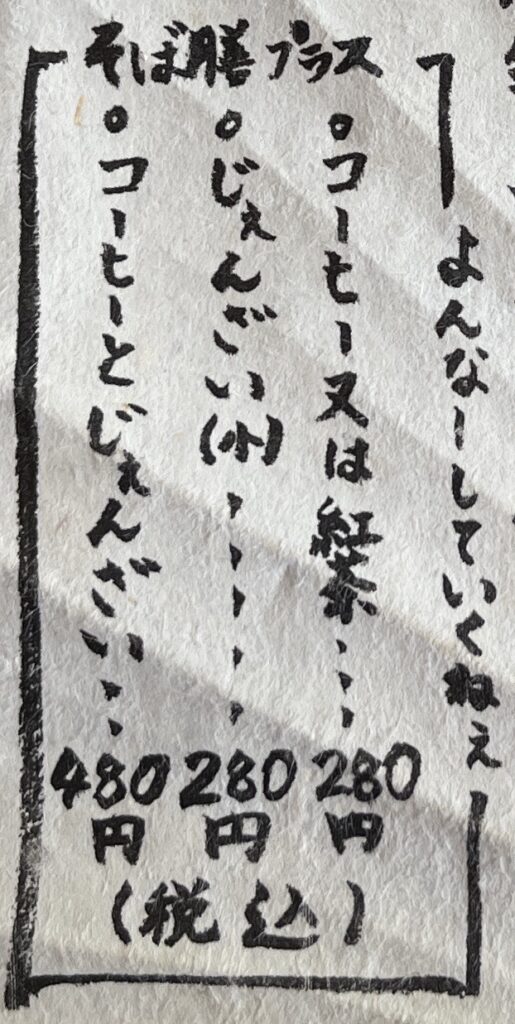 よんなーしていくねぇ
そば膳プラス
○コーヒー又は紅茶・・・・280円
○じぇんざい(小)・・・・・280円
○コーヒーとじぇんざい・・・480円
(税込)